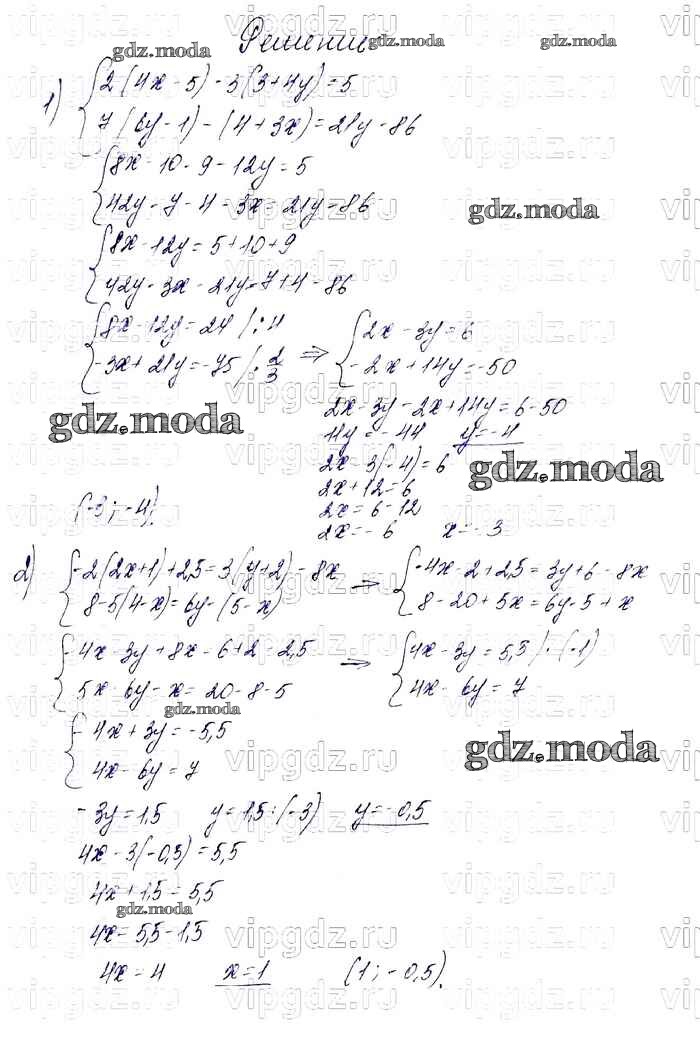 Решение
1) {2(4x-5)-3(3+4y)=5
7(6y-1)-(4+3x)=21y-86
{8x-10-9-12y=5
42y-7-4-3x=21y-86
{8x-12y=5+10+9
42y-3x-21y=7+4-86
{8x-12y=24 /:4
-3x+21y=-75 /·2/3 ⇒ {2x-3y=6
-2x+14y=-50
2x-3y-2x+14y=6-50
11y=-44 y=-4
2x-3(-4)=6
2x+12=6
2x=6-12
2x=-6 x=-3
(-3;-4).
2) {-2(2x+1)+2,5=3(y+2)-8x
8-5(4-x)=6y-(5-x) ⇒ {-4x-2+2,5=3y+6-8x
8-20+5x=6y-5+x
{-4x-3y+8x=6+2-2,5
5x-6y-x=20-8-5 ⇒ {4x-3y=5,5 /·(-1)
4x-6y=7
{-4x+3y=-5,5
4x-6y=7
-3y=1,5 y=1,5:(-3) y=-0,5
4x-3(-0,5)=5,5
4x+1,5=5,5
4x=5,5-1,5
4x=4 x=1 (1;-0,5).
gdz.moda
vipgdz.ru